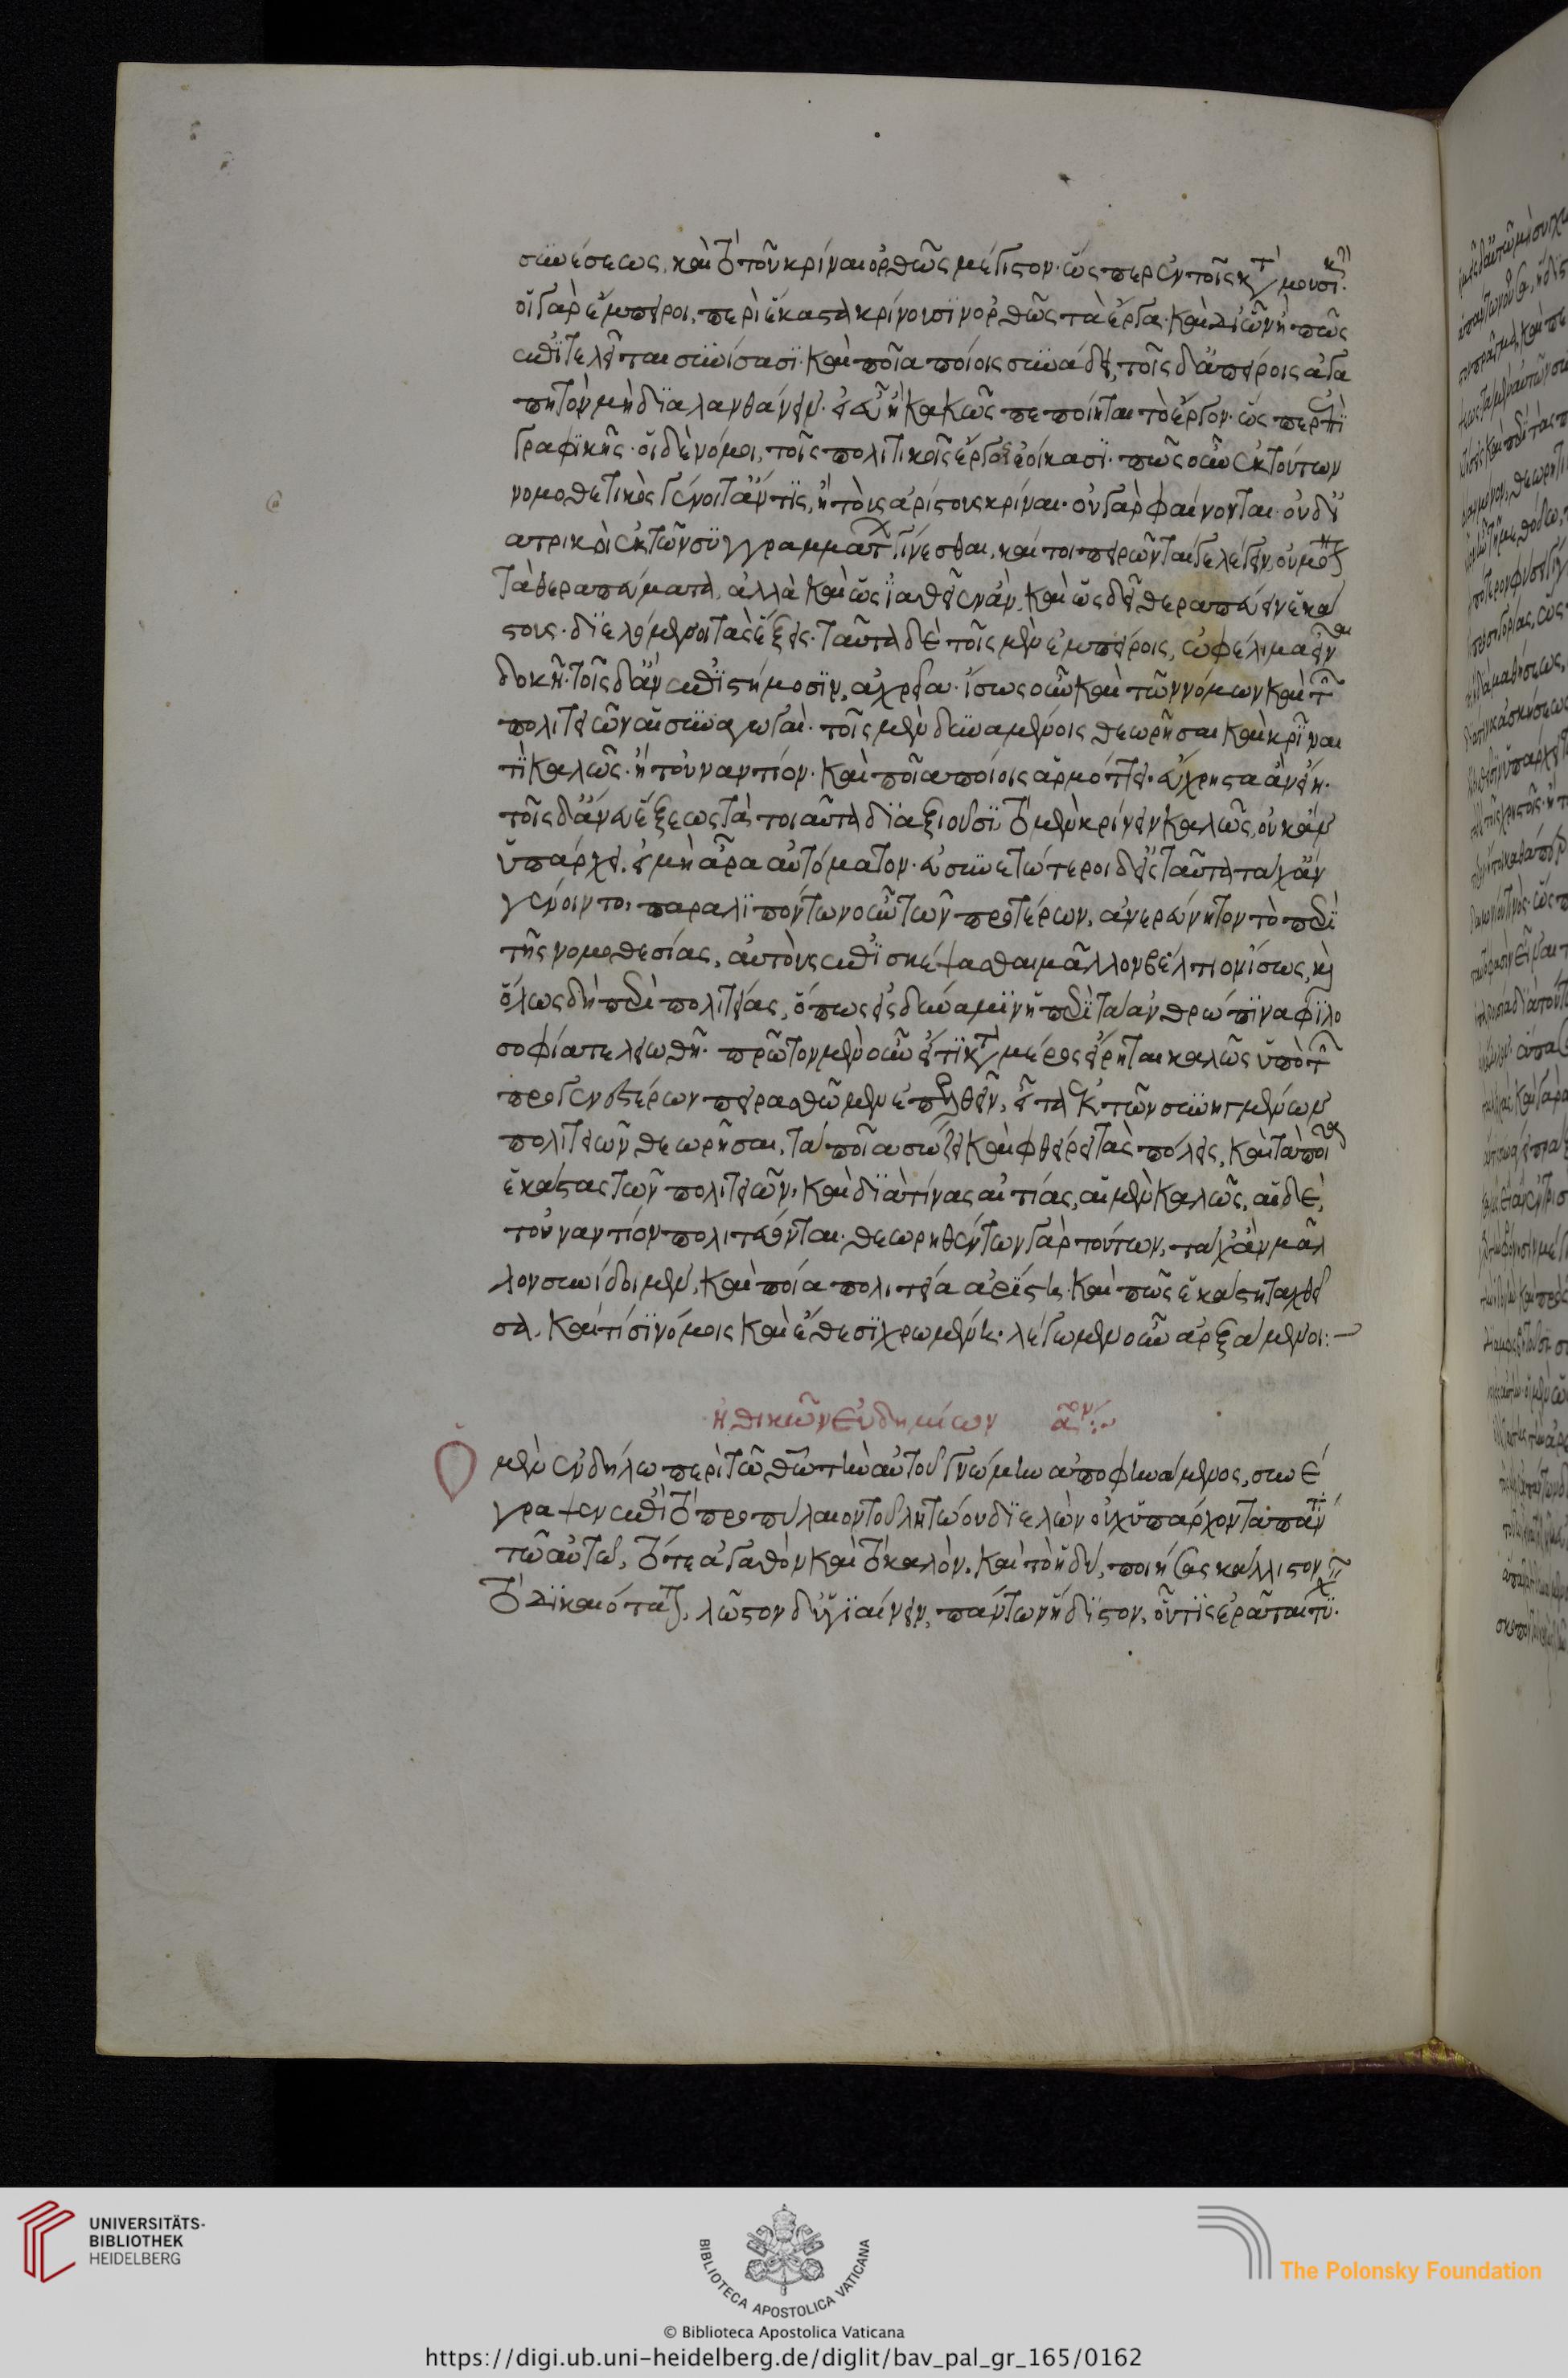 συνέσεως, καὶ τὸ κρίναι ὀρθῶς μέγιστον· ὥς περ ἐν τοῖς κατὰ μουσικήν·
οἱ γὰρ ἔμπειροι, περὶ ἕκαστα κρίνουσιν ὀρθῶς τὰ ἔργα· καὶ δι' ὧν ἢ πῶς
ἐπιτελεῖται συνίσασι· καὶ ποῖα ποίοις συνάδει, τοῖς δ' ἀπείροις ἀγα
πητὸν μὴ διαλανθάνειν· εἰ εὖ ἢ κακῶς πεποίηται τὸ ἔργον· ὥς περ ἐπὶ
γραφικῆς· οἱ δὲ νόμοι, τοῖς πολιτικοῖς ἔργοις ἐοίκασι· πῶς οὖν ἐκ τούτων
νομοθετικὸς γένοιτ' ἄν τις, ἢ τοὺς ἀρίστους κρίναι· οὐ γὰρ φαίνονται οὐδ'
ἰατρικοὶ ἐκ τῶν συγγραμμάτων γίνεσθαι, καί τοι πειρῶνται γε λέγειν, οὐ μόνον
τὰ θεραπεύματα, ἀλλὰ καὶ ὡς ἰαθεῖεν ἂν, καὶ ὡς δεῖ θεραπεύειν ἑκά
στους· διελόμενοι τὰς ἕξεις· ταῦτα δὲ τοῖς μὲν ἐμπείροις, ὠφέλιμα εἶναι
δοκεῖ· τοῖς δ' ἀνεπιστήμοσιν, ἀχρεῖα· ἴσως οὖν καὶ τῶν νόμων καὶ τῶν
πολιτειῶν αἱ συναγωγαὶ· τοῖς μὲν δυναμένοις θεωρῆσαι καὶ κρῖναι
τί καλῶς· ἢ τοὐναντίον· καὶ ποῖα ποίοις ἁρμόττει· εὔχρηστα ἂν εἴη·
τοῖς δ' ἄνευ ἕξεως τὰ τοιαῦτα διεξιοῦσι τὸ μὲν κρίνειν καλῶς, οὐκ ἂν
ὑπάρχει, εἰ μὴ ἄρα αὐτόματον· εὐσυνετώτεροι δ' εἰς ταῦτα τάχ' ἂν
γένοιντο· παραλιπόντων οὖν τῶν προτέρων, ἀνερεύνητον τὸ περὶ
τῆς νομοθεσίας, αὐτοὺς ἐπισκέψασθαι μᾶλλον βέλτιον ἴσως, καὶ
ὅλως δὴ περὶ πολιτείας, ὅπως εἰς δύναμιν ἡ περὶ τὰ ἀνθρώπινα φιλο
σοφία τελειωθῇ· πρῶτον μὲν οὖν εἴ τι κατὰ μέρος εἴρηται καλῶς ὑπὸ τῶν
προγενεστέρων πειραθῶμεν ἐπελθεῖν, εἶτα ἐκ τῶν συνηγμένων
πολιτειῶν θεωρῆσαι, τὰ ποῖα σώζει καὶ φθείρει τὰς πόλεις, καὶ τὰ ποῖα
ἑκάστας τῶν πολιτειῶν· καὶ διὰ τίνας αἰτίας, αἱ μὲν καλῶς, αἱ δὲ,
τοὐναντίον πολιτεύονται· θεωρηθέντων γὰρ τούτων, τάχ' ἂν μᾶλ
λον συνίδοιμεν, καὶ ποία πολιτεία ἀρίστη· καὶ πῶς ἑκάστη ταχθεῖ
σα, καὶ τίσι νόμοις καὶ ἔθεσι χρωμένη· λέγωμεν οὖν ἀρξάμενοι:—
ἠθικῶν εὐδημίων αον:~
Ὁ μὲν ἐν δήλω περὶ τῶ θεῶ τὴν αὐτοῦ γνώμην ἀποφηνάμενος, συνέ
γραψεν ἐπὶ τὸ προπύλαιον τοῦ λητώου διελὼν οὐχ ὑπάρχοντα πάντα
τῶ αὐτῶ, τό τε ἀγαθὸν καὶ τὸ καλὸν, καὶ τὸ ἡδύ, ποιήσας κάλλιστον
τὸ δικαιότατον, λῶστον δ' ὑγιαίνειν, πάντων ἥδιστον, οὗ τις ἐρᾶται τυχεῖν·
UNIVERSITÄTS-
BIBLIOTHEK
HEIDELBERG
BIBLIOTECA APOSTOLICA VATICANA
The Polonsky Foundation
© Biblioteca Apostolica Vaticana
https://digi.ub.uni-heidelberg.de/diglit/bav_pal_gr_165/0162